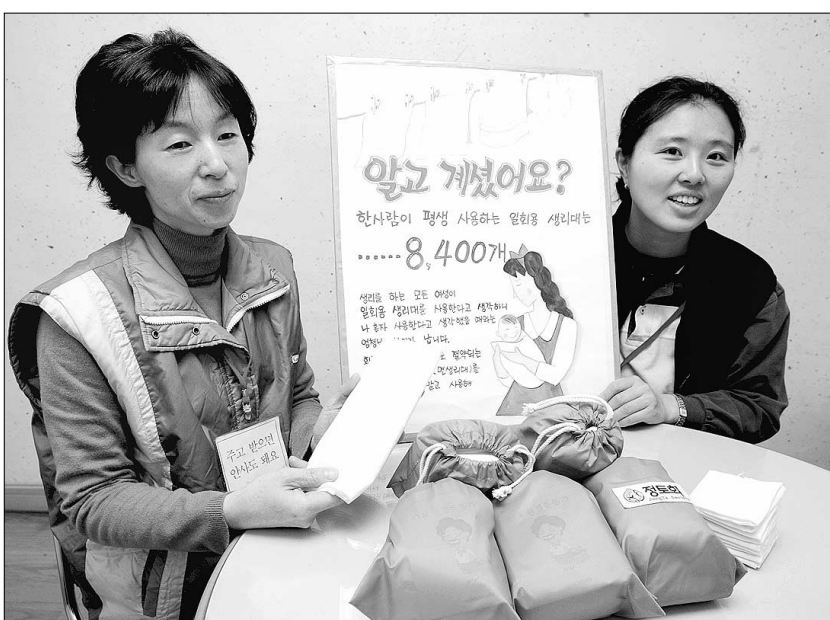 알고 계셨어요?
한사람이 평생 사용하는 일회용 생리대는
......8,400개
생리를 하는 모든 여성이
일회용 생리대를 사용한다고 생각하니
나 혼자 사용한다고 생각했을 때와는
납니다.
절약되는
면생리대)를
사용해
주고 받으면
안사도 돼요
정토회